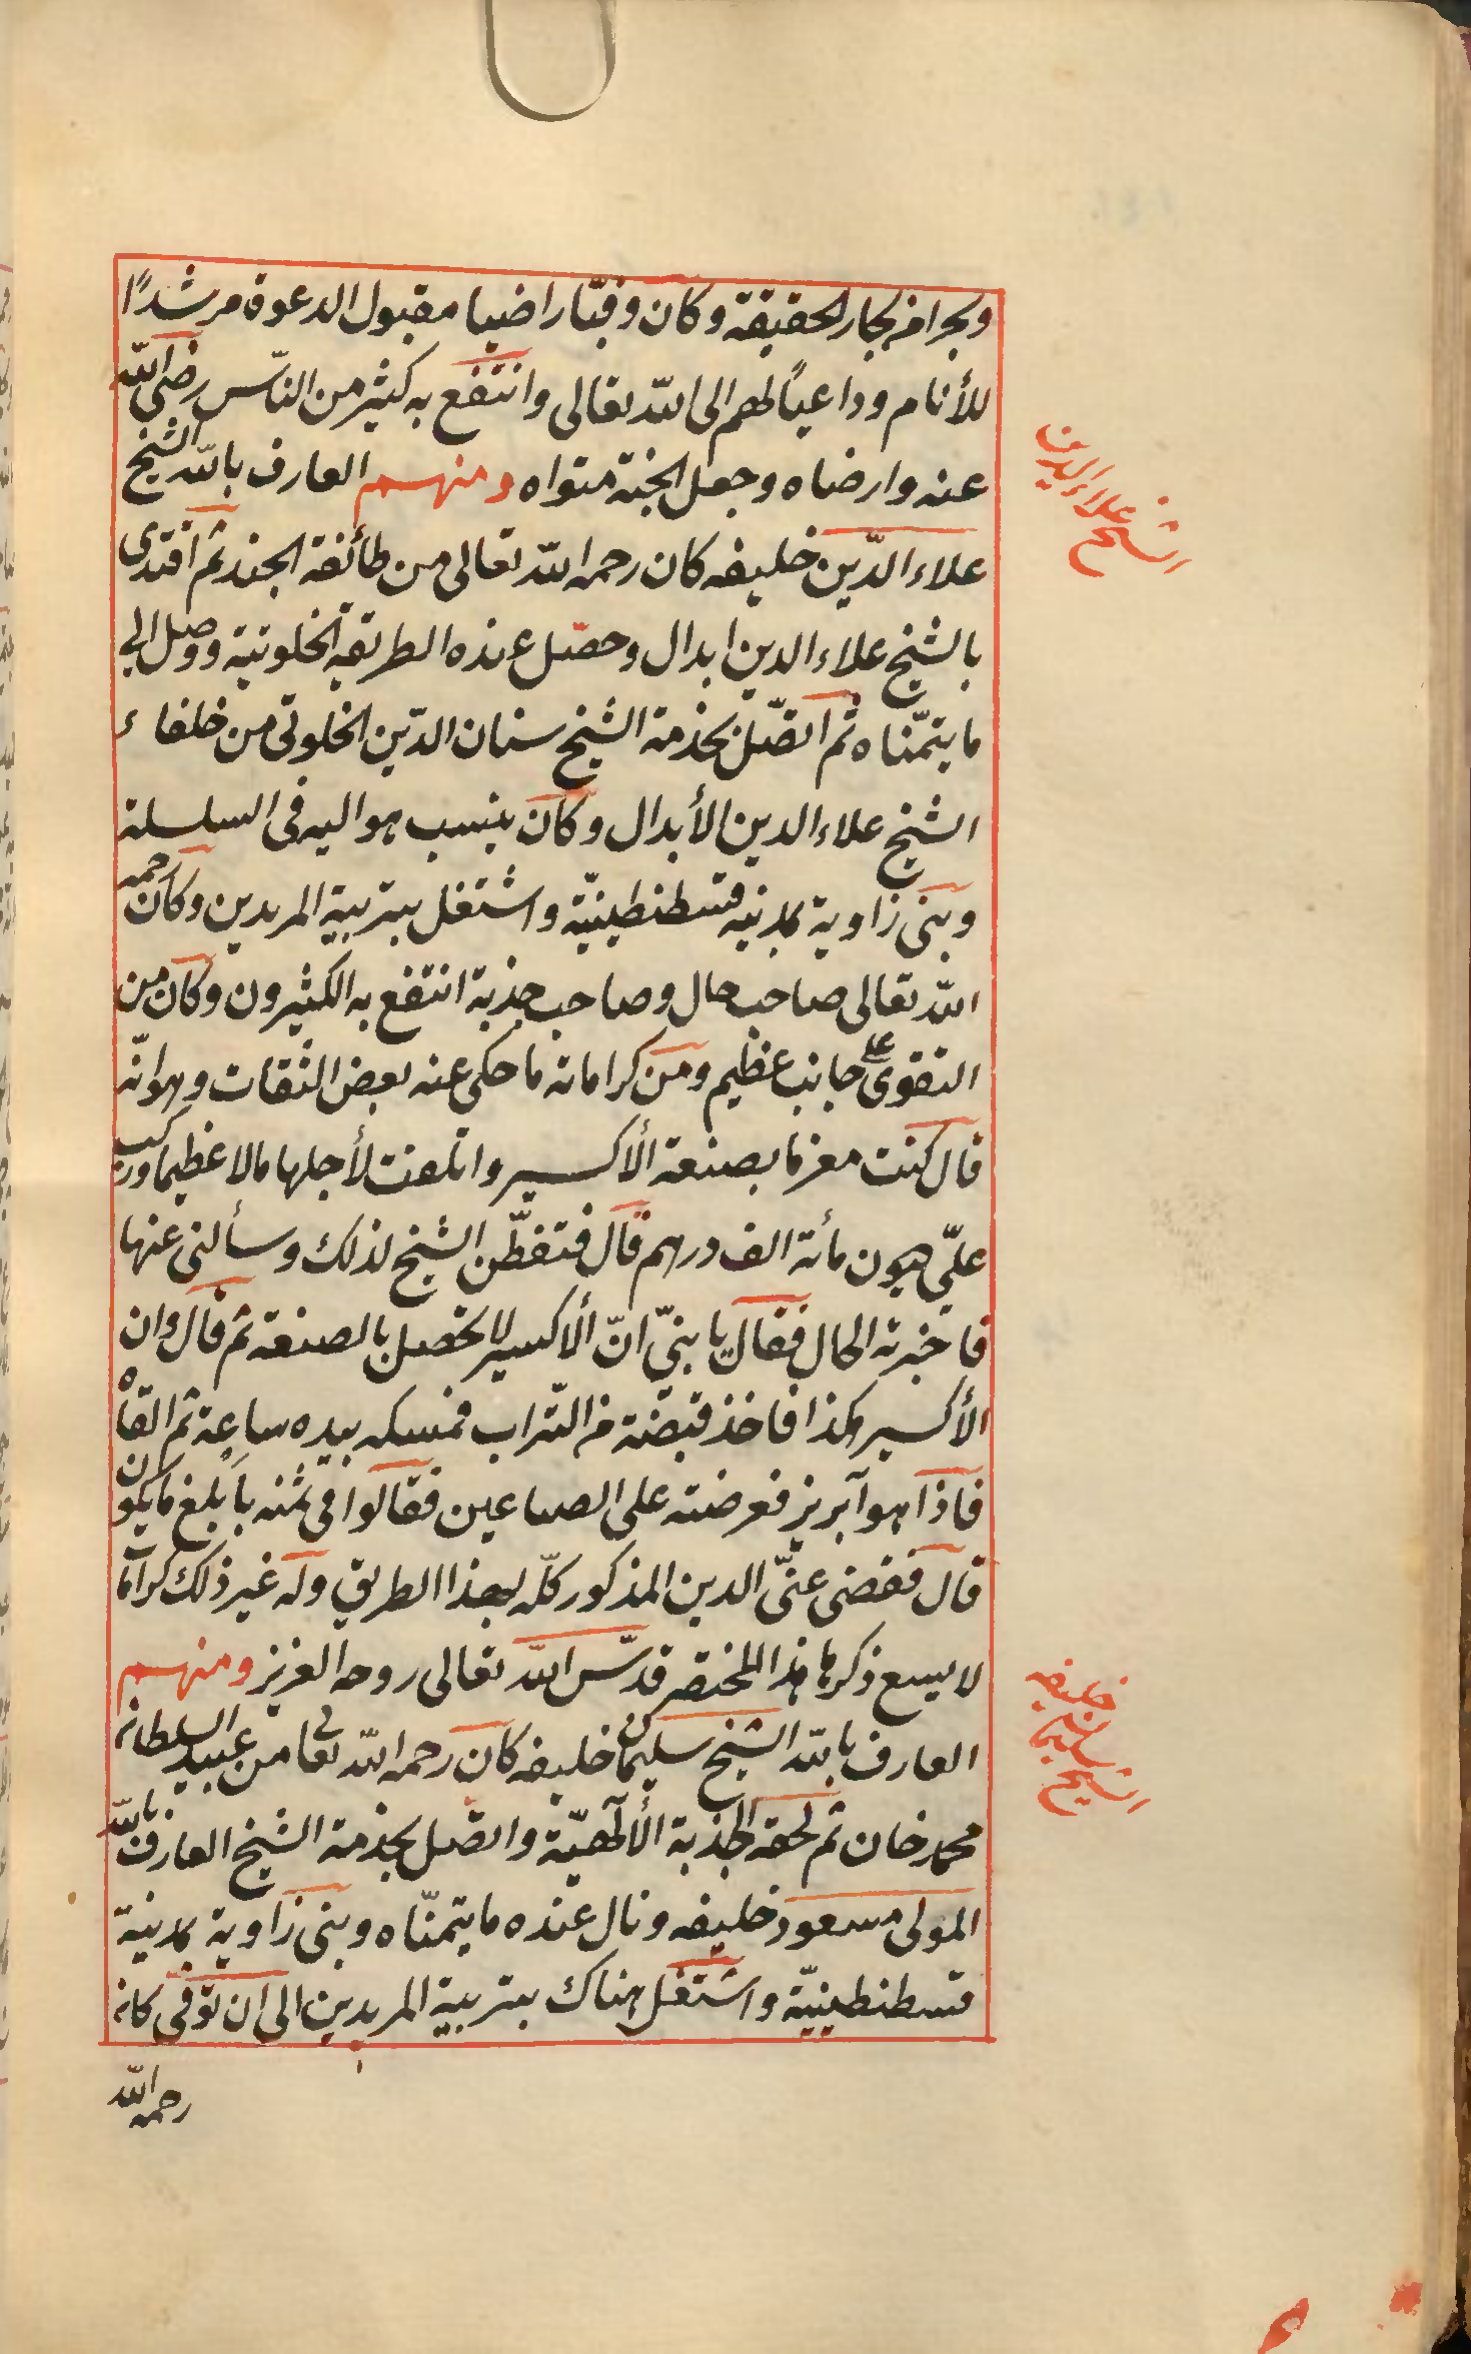 وبحرا من بحار الحقيقة وكان وفيّا راضيا مقبول الدعوة مرشدًا
للأنام وداعيًا لهم الى الله تعالى وانتفع به كثير من النّاس رضى الله
عنه وارضاه وجعل الجنة مثواه ومنهم العارف بالله الشيخ
الشيخ علاء الدين
علاء الدّين خليفه كان رحمه الله تعالى من طائفة الجند ثم اقتدى
بالشيخ علاء الدين ابدال وحصّل عنده الطريقة الخلوتية ووصل الى
ما يتمّناه ثم اتصّل بخدمة الشيخ سنان الدّين الخلوتى من خلفاء
الشيخ علاء الدين الأبدال وكان ينسب هو اليه فى السلسلة
وبنى زاوية بمدينه قسطنطينيّة واشتغل بتربية المريدين وكان رحمه
الله تعالى صاحب حال وصاحب جذبة انتفع به الكثيرون وكان من
التقوى على جانب عظيم ومن كراماته ما حكى عنه بعض الثقات وهو انّه
قال كنت مغرما بصنعة الأكسير واتلفت لأجلها مالا عظيما وركب
علىّ ديون مأئة الف درهم قال فتفطّن الشيخ لذلك وسألنى عنها
فاخبرته الحال فقال يا بنىّ انّ ألاكسير لا يحصل بالصنعة ثم قال وان
الأكسير هكذا فاخذ قبضة من التّراب فمسكه بيده ساعة ثم القاه
فاذا هو آبريز فعرضته على الصباغين فقالوا فى ثمنه بأبلغ ما يكون
قال فقضى عنّى الدين المذكور كلّه بهذا الطريق وله غير ذلك كراما
لا يسع ذكرها هذا المختصر قدّس الله تعالى روحه العزيز ومنهم
الشيخ سليمان خليفه
العارف بالله الشيخ سليمان خليفه كان رحمه الله تعالى من عبيد السلطان
محمد خان ثم لحقه الجذبة الألهيّة واتصل بخدمة الشيخ العارف بالله
المولى مسعود خليفه ونال عنده ما يتمنّاه وبنى زاوية بمدينة
قسطنطينيّة واشتغل هناك بتربية المريدين الى ان توفى كان
رحمه الله